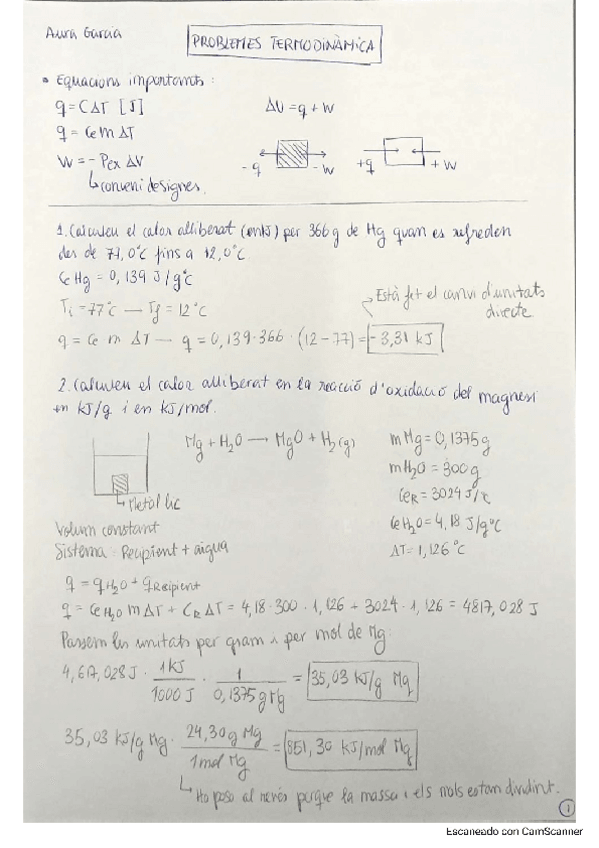 Aura Garcia
PROBLEMES TERMODINÀMICA
• Equacions importants:
q = CΔT [J]
ΔU = q + W
q = Ce m ΔT
W = - Pex ΔV
- q
- W
+q
+ W
↳ conveni de signes.
1. Calculeu el calor alliberat (en kJ) per 366 g de Hg quan es refreden
des de 77,0°C fins a 12,0°C
Ce Hg = 0,139 J/g°C
Ti = 77°C — Tf = 12°C
Està fet el canvi d'unitats
directe
q = Ce m ΔT — q = 0,139·366·(12-77) = - 3,31 kJ
2. Calculeu el calor alliberat en la reacció d'oxidació del magnesi
en kJ/g i en kJ/mol.
Mg + H2O → MgO + H2(g)
mMg = 0,1375g
mH2O = 300g
CeR = 3024 J/°C
CeH2O = 4,18 J/g°C
ΔT = 1,126 °C
Volum constant
Sistema: Recipient + aigua
q = qH2O + qRecipient
q = CeH2O m ΔT + CR ΔT = 4,18·300·1,126 + 3024·1,126 = 4817,028 J
Passem les unitats per gram i per mol de Mg:
4,617,028 J · 1 kJ / 1000 J · 1 / 0,1375g Mg = 35,03 kJ/g Mg
35,03 kJ/g Mg · 24,30 g Mg / 1 mol Mg = 851,30 kJ/mol Mg
↳ Ho poso al revés perque la massa i els mols estam dividint.
1
Escaneado con CamScanner